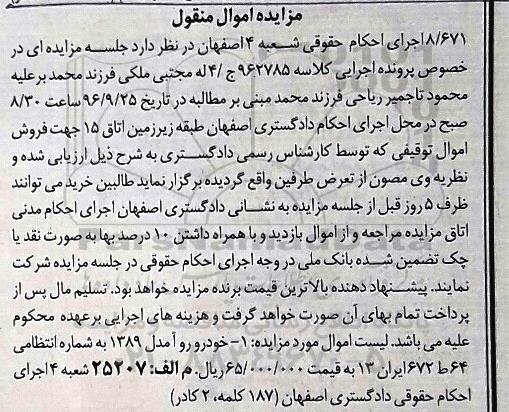 مزایده اموال منقول
۸/۶۷۱ اجرای احکام حقوقی شعبه ۴ اصفهان در نظر دارد جلسه مزایده ای در
خصوص پرونده اجرایی کلاسه ۹۶۲۷۸۵ ج /۴ له مجتبی ملکی فرزند محمد بر علیه
محمود تاجمیر ریاحی فرزند محمد مبنی بر مطالبه در تاریخ ۹۶/۹/۲۵ ساعت ۸/۳۰
صبح در محل اجرای احکام دادگستری اصفهان طبقه زیرزمین اتاق ۱۵ جهت فروش
اموال توقیفی که توسط کارشناس رسمی دادگستری به شرح ذیل ارزیابی شده و
نظریه وی مصون از تعرض طرفین واقع گردیده برگزار نماید طالبین خرید می توانند
ظرف ۵ روز قبل از جلسه مزایده به نشانی دادگستری اصفهان اجرای احکام مدنی
اتاق مزایده مراجعه و از اموال بازدید و با همراه داشتن ۱۰ درصد بها به صورت نقد یا
چک تضمین شده بانک ملی در وجه اجرای احکام حقوقی در جلسه مزایده شرکت
نمایند. پیشنهاد دهنده بالاترین قیمت برنده مزایده خواهد بود. تسلیم مال پس از
پرداخت تمام بهای آن صورت خواهد گرفت و هزینه های اجرایی بر عهده محکوم
علیه می باشد. لیست اموال مورد مزایده: ۱- خودرو روآ مدل ۱۳۸۹ به شماره انتظامی
۶۴ ط ۶۷۲ ایران ۱۳ به قیمت ۶۵/۰۰۰/۰۰۰ ریال. م الف: ۲۵۲۰۷ شعبه ۴ اجرای
احکام حقوقی دادگستری اصفهان (۱۸۷ کلمه، ۲ کادر)